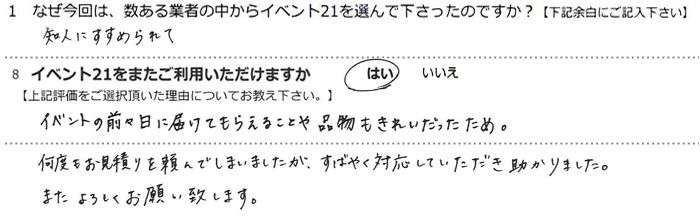 1 なぜ今回は、数ある業者の中からイベント21を選んで下さったのですか？【下記余白にご記入下さい】
知人にすすめられて
8 イベント21をまたご利用いただけますか はい いいえ
【上記評価をご選択頂いた理由についてお教え下さい。】
イベントの前々日に届けてもらえることや品物もきれいだったため。
何度もお見積りを頼んでしまいましたが、すばやく対応していただき助かりました。
またよろしくお願い致します。